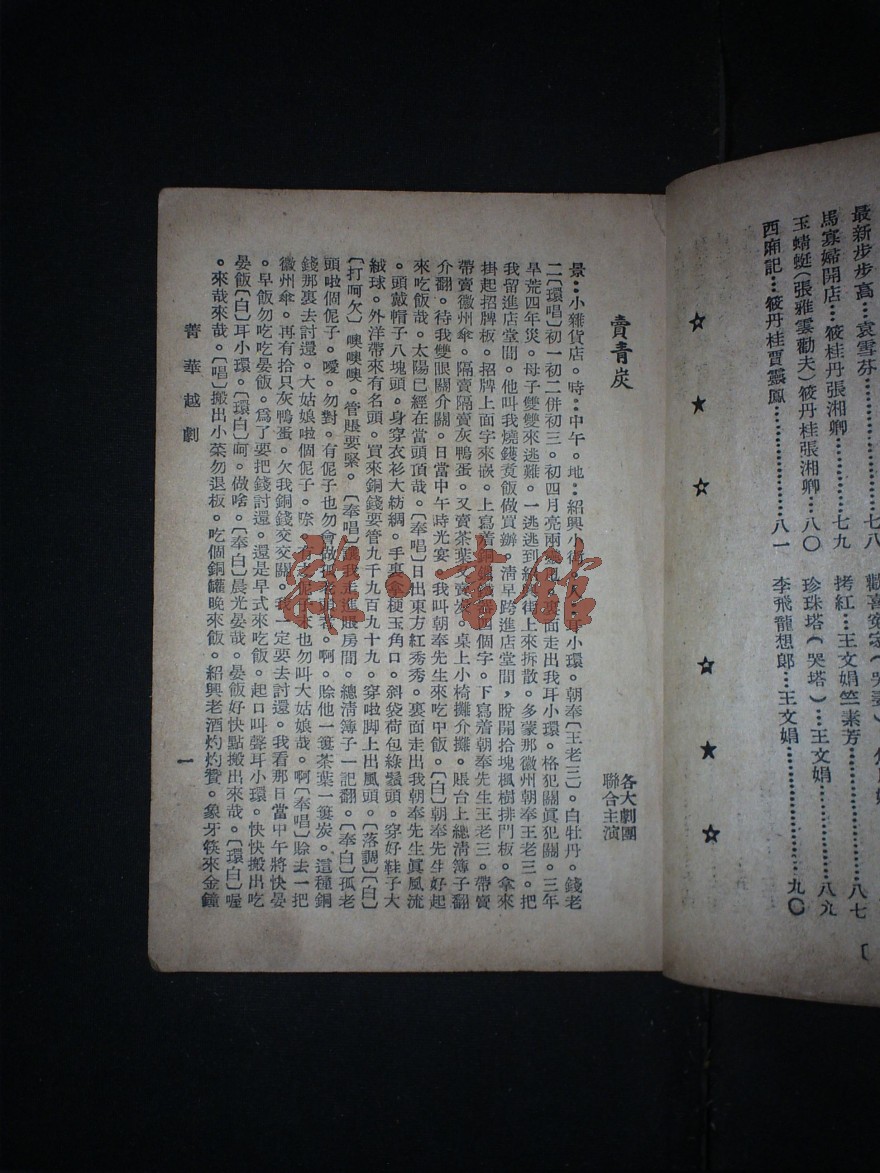 最新步步高⋯袁雪芬⋯⋯七八
馬寡婦開店⋯筱桂丹張湘卿⋯⋯七九
玉蜻蜓(張雅雲勸夫)筱丹桂張湘卿⋯⋯八〇
西廂記⋯筱丹桂賈靈鳳⋯⋯八一
八七
珍珠塔(哭塔)⋯王文娟⋯⋯八九
拷紅⋯王文娟竺素芳
李飛龍想郎⋯王文娟⋯⋯九〇
賣青炭
各大劇團
聯合主演
景：小雜貨店。時：中午。地：紹興小街。人：耳小環。朝奉〔王老三〕。白牡丹。錢老
二〔環唱〕初一初二併初三。初四月亮兩 裏面走出我耳小環。格犯關眞犯關。三年
旱荒四年災。母子雙雙來逃難。一逃逃到 街上來拆散。多蒙那徽州朝奉王老三。把
我留進店堂間。他叫我燒錢煑飯做買辦。淸早跨進店堂間，脫開拾塊楓樹排門板。拿來
掛起招牌板。招牌上面字來嵌。上寫着 四個字。下寫着朝奉先生王老三。帶賣
帶賣徽州傘。隔賣隔賣灰鴨蛋。又賣茶葉又賣炭。桌上小椅攤介攤。賬台上總清簿子翻
介翻。待我雙眼關介關。日當中午時光宴。我叫朝奉先生來吃中飯。〔白〕朝奉先生好起
來吃飯哉。太陽已經在當頭頂哉。〔奉唱〕日出東方紅秀秀。裏面走出我朝奉先生眞風流
。頭戴帽子八塊頭。身穿衣衫大紡綢。手裏拿梗玉角口。斜袋荷包綠鬚頭。穿好鞋子大
絨球。外洋帶來有名頭。買來銅錢要管九千九百九十九。穿啦脚上出風頭。〔落調〕〔白〕
〔打呵欠〕噢噢噢。管賬要緊。〔奉唱〕讓我走進賬房間。總淸簿子一記翻。〔奉白〕孤老
頭啦個伲子。噯。勿對。有伲子也勿會做孤老頭者。啊。賒他一簍茶葉一簍炭。這種銅
錢那裏去討還。大姑娘啦個伲子。 有之伲子末也勿叫大姑娘哉。啊〔奉唱〕賒去一把
徽州傘。再有拾只灰鴨蛋。欠我銅錢交交關。我一定要去討還。我看那日當中午將快晏
。早飯勿吃吃晏飯。爲了要把錢討還。還是早式來吃飯。起口叫聲耳小環。快快搬出吃
晏飯〔白〕耳小環。〔環白〕呵。做啥。〔奉白〕晨光晏哉。晏飯好快點搬出來哉。〔環白〕喔
。來哉來哉。〔唱〕搬出小菜勿退板。吃個銅罐晚來飯。紹興老酒灼灼賛。象牙筷來金鐘
菁華越劇
一
雜·書館